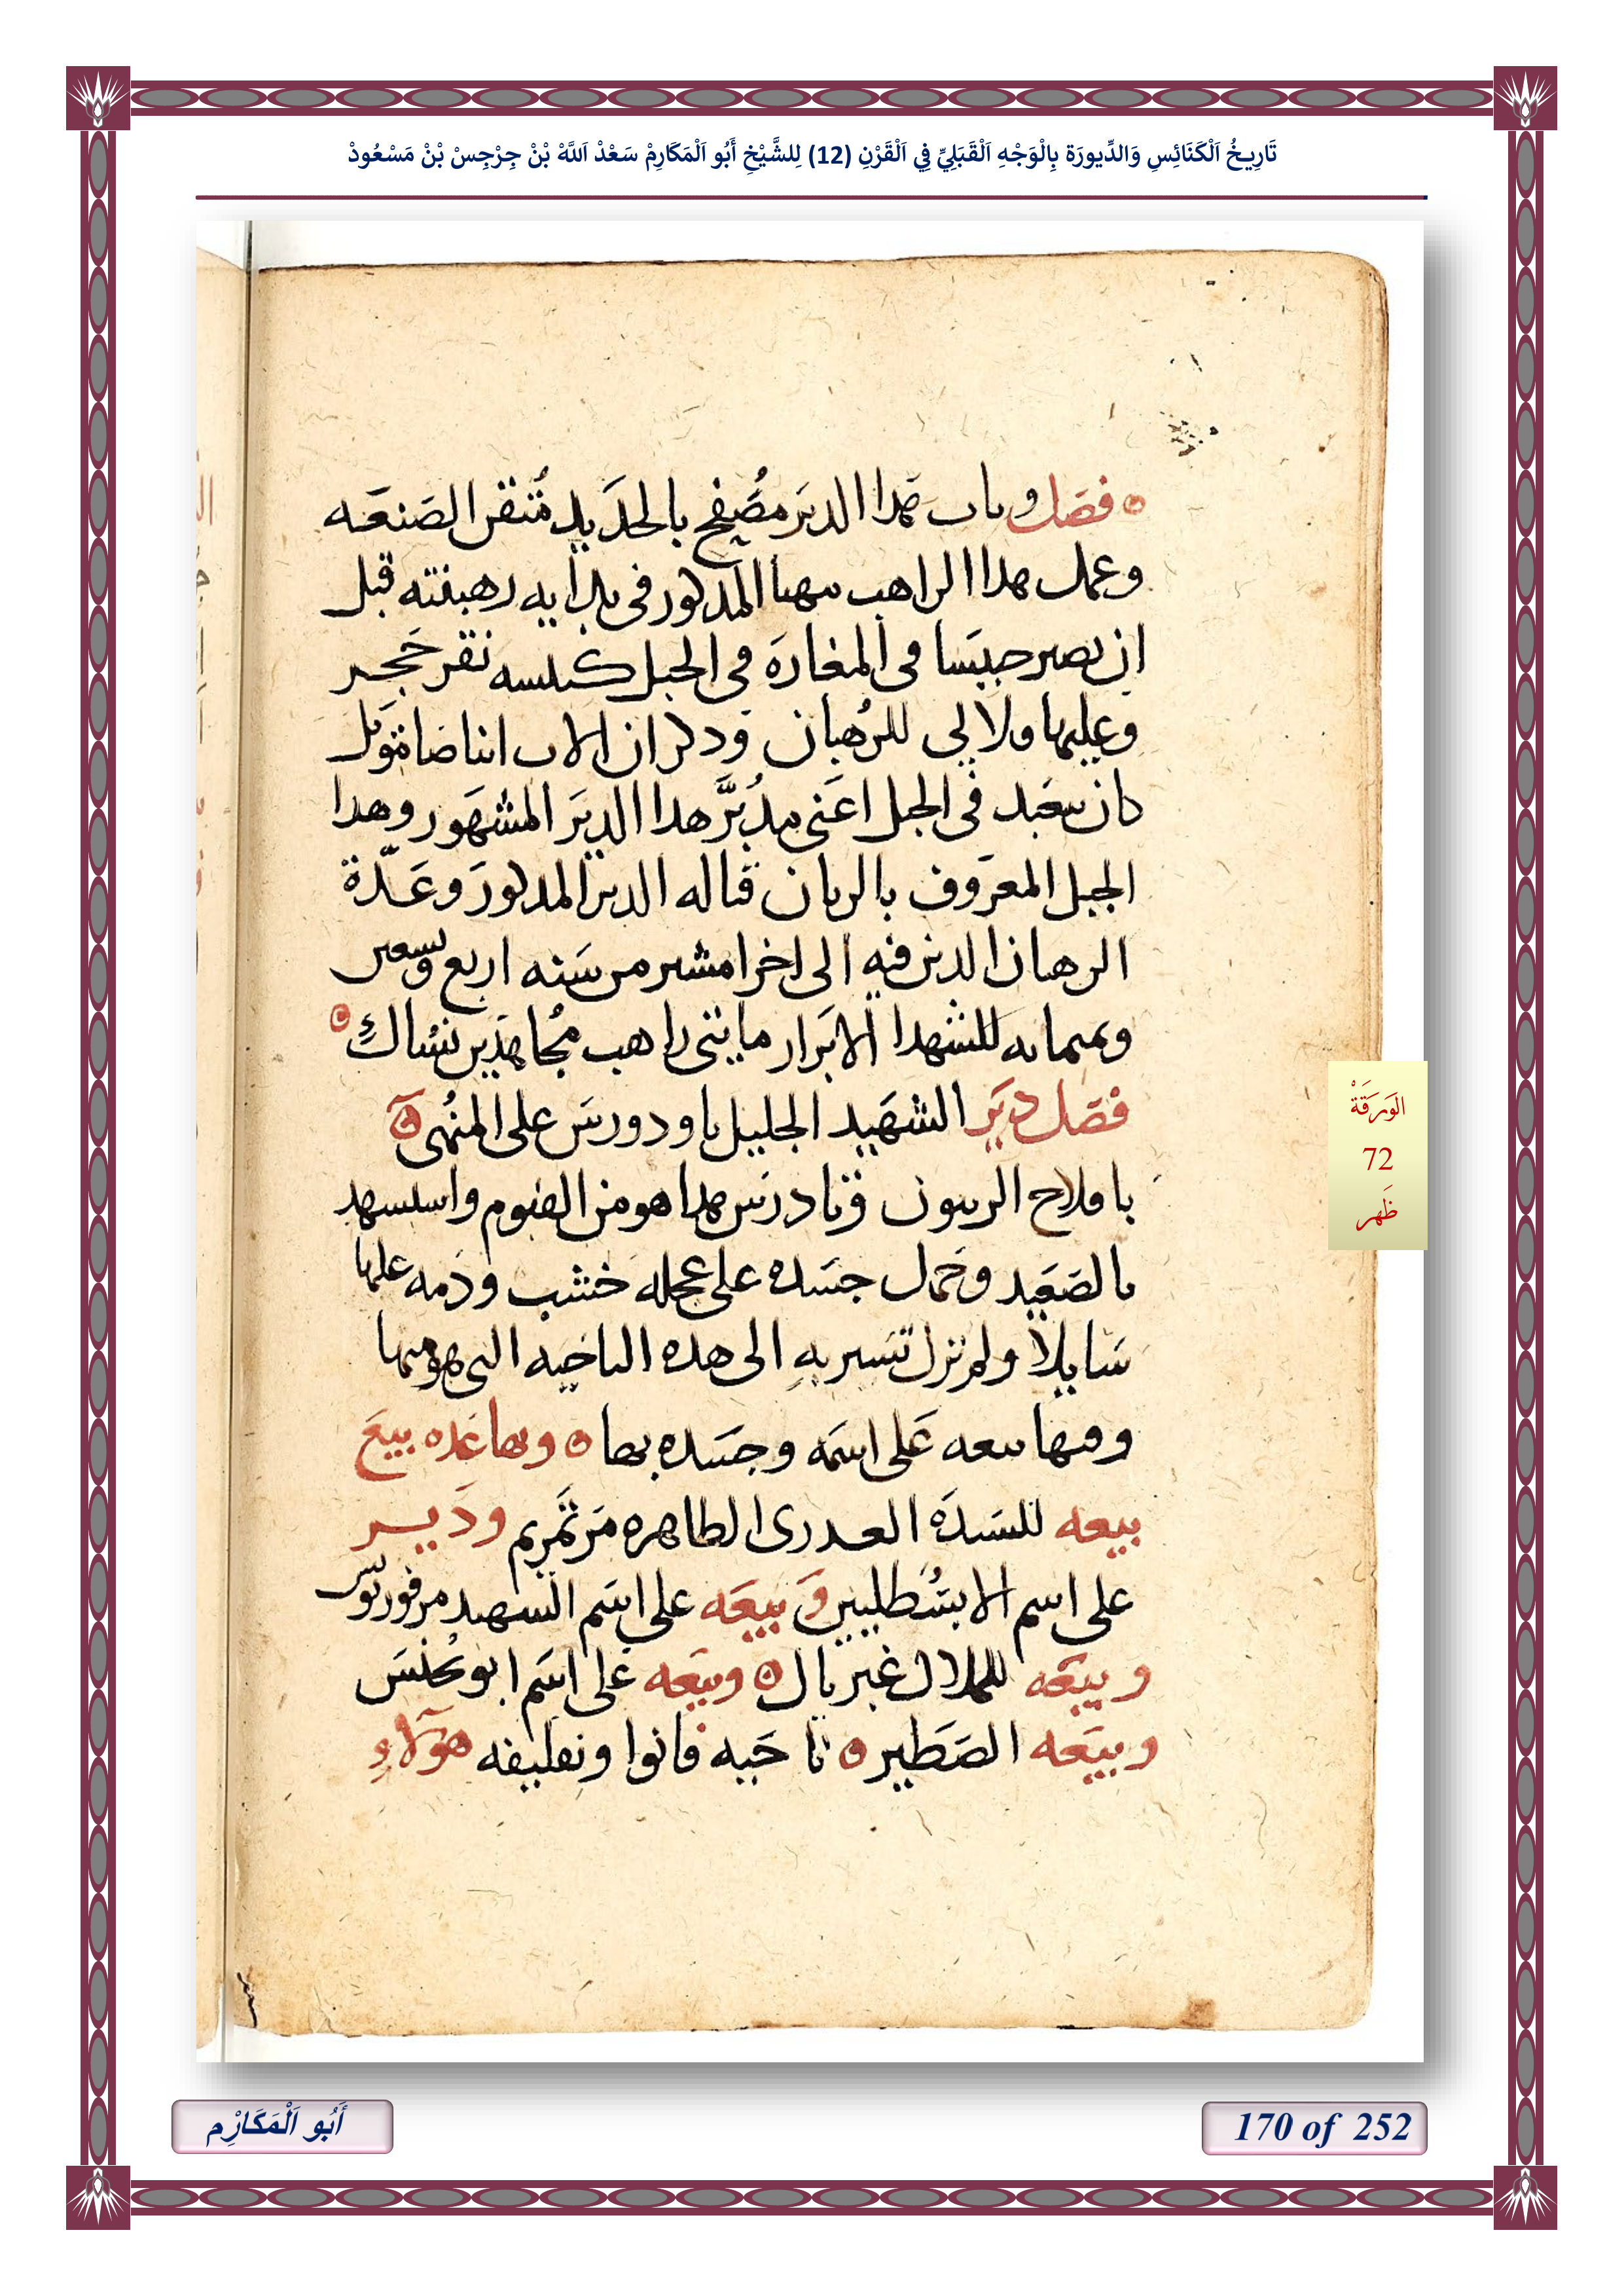 تَارِيخُ اَلْكَنَائِسِ وَالدِّيورَة بِالْوَجْهِ اَلْقَبَلِيِّ فِي اَلْقَرْنِ (12) لِلشَّيْخِ أَبُو اَلْمَكَارِمْ سَعْدْ اَللَّهْ بْنْ جِرْجِسْ بْنْ مَسْعُودْ
فصل وباب هدا الدير مصفح بالحديد متقن الصنعه
وعمل هدا الراهب مهنا المدكور في بدايه رهبنته قبل
ان يصير حبيسا في المغارة في الجبل كنيسه نقر حجر
وعليها قلالي للرهبان ودكر ان الاب
كان يتعبد في الجبل اعني مدبر هدا الدير المشهور وهدا
الجبل المعروف بالريان قباله الدير المدكور وعدة
الرهبان الدين فيه الى اخر امشير من سنه اربع وتسعين
وثمانمايه للشهدا الابرار مايتي راهب مجاهدين نساك
فصل دير الشهيد الجليل تاودورس على المنهى
بافلاح الزيتون وتادرس هدا هو من الفيوم واستشهد
بالصعيد وحمل جسده على عجله خشب ودمه عليها
سايلا ولم تزل تسير به الى هده الناحيه التي هو منها
وفيها بيعه على اسمه وجسده بها وبها عده بيع
بيعه للسيدة العدرى الطاهره مرتمريم ودير
على اسم الابسطليين وبيعه على اسم الشهيد مرقوريوس
وبيعه للملاك غبريال وبيعه على اسم ابو يحنس
وبيعه الصطير ناحيه قانوا ونقليفه هولاء
الوَرَقَةْ
72
ظَهر
أَبُو اَلْمَكَارِْم
170 of 252